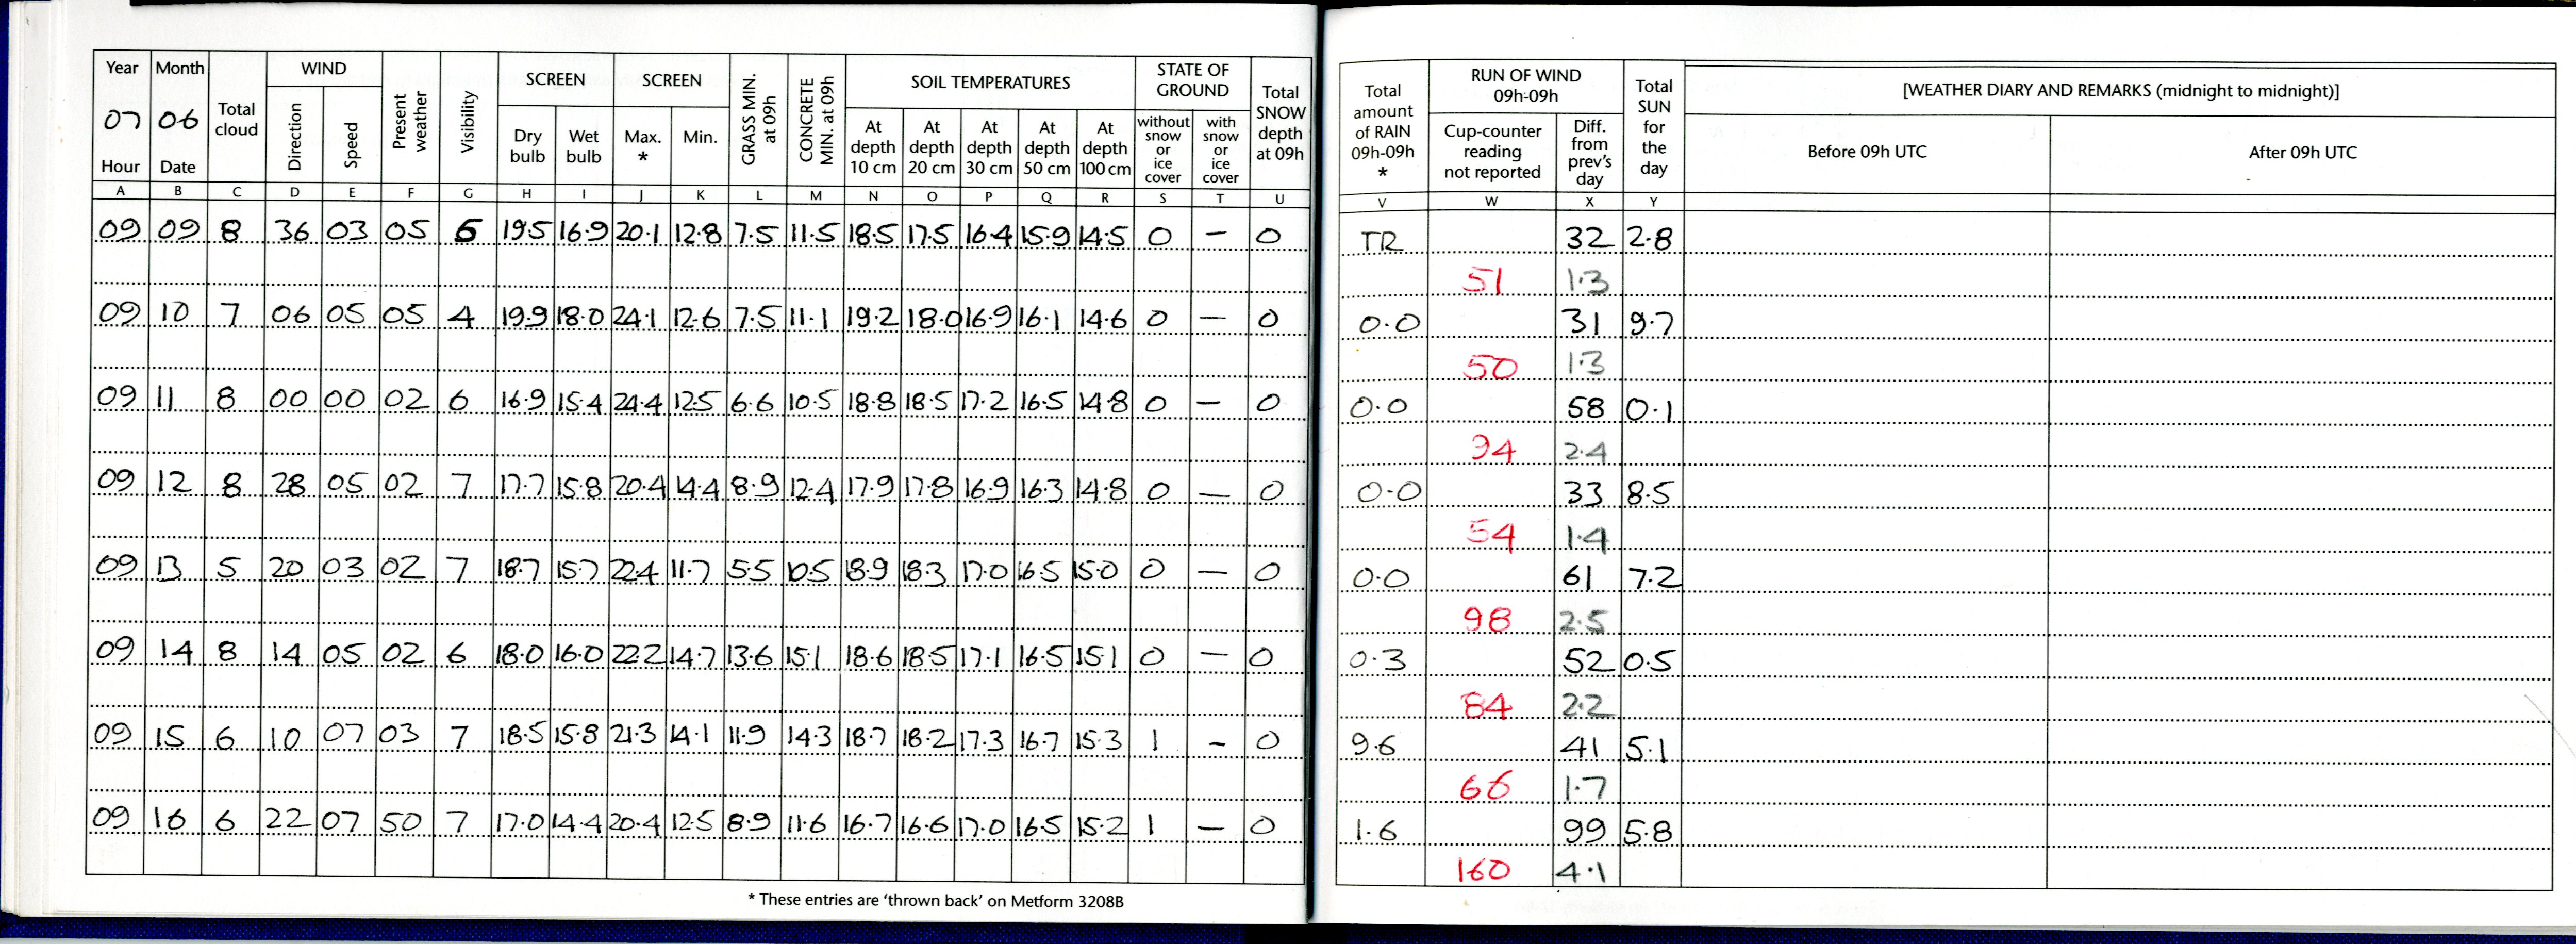 Year Month WIND SCREEN SCREEN SOIL TEMPERATURES STATE OF GROUND RUN OF WIND 09h-09h [WEATHER DIARY AND REMARKS (midnight to midnight)]
07 06 Total cloud Direction Speed Present weather Visibility Dry bulb Wet bulb Max. * Min. GRASS MIN. at 09h CONCRETE MIN. at 09h At depth 10 cm At depth 20 cm At depth 30 cm At depth 50 cm At depth 100 cm without snow or ice cover with snow or ice cover Total SNOW depth at 09h Total amount of RAIN 09h-09h * Cup-counter reading not reported Diff. from prev's day Total SUN for the day Before 09h UTC After 09h UTC
Hour Date
A B C D E F G H I J K L M N O P Q R S T U V W X Y
09 09 8 36 03 05 6 19.5 16.9 20.1 12.8 7.5 11.5 18.5 17.5 16.4 15.9 14.5 0 – 0 TR 32 2.8
51 1.3
09 10 7 06 05 05 4 19.9 18.0 24.1 12.6 7.5 11.1 19.2 18.0 16.9 16.1 14.6 0 – 0 0.0 31 9.7
50 1.3
09 11 8 00 00 02 6 16.9 15.4 24.4 12.5 6.6 10.5 18.8 18.5 17.2 16.5 14.8 0 – 0 0.0 58 0.1
94 2.4
09 12 8 28 05 02 7 17.7 15.8 20.4 14.4 8.9 12.4 17.9 17.8 16.9 16.3 14.8 0 – 0 0.0 33 8.5
54 1.4
09 13 5 20 03 02 7 18.7 15.7 22.4 11.7 5.5 10.5 18.9 18.3 17.0 16.5 15.0 0 – 0 0.0 61 7.2
98 2.5
09 14 8 14 05 02 6 18.0 16.0 22.2 14.7 13.6 15.1 18.6 18.5 17.1 16.5 15.1 0 – 0 0.3 52 0.5
84 2.2
09 15 6 10 07 03 7 18.5 15.8 21.3 14.1 11.9 14.3 18.7 18.2 17.3 16.7 15.3 1 – 0 9.6 41 5.1
66 1.7
09 16 6 22 07 50 7 17.0 14.4 20.4 12.5 8.9 11.6 16.7 16.6 17.0 16.5 15.2 1 – 0 1.6 99 5.8
160 4.1
* These entries are 'thrown back' on Metform 3208B